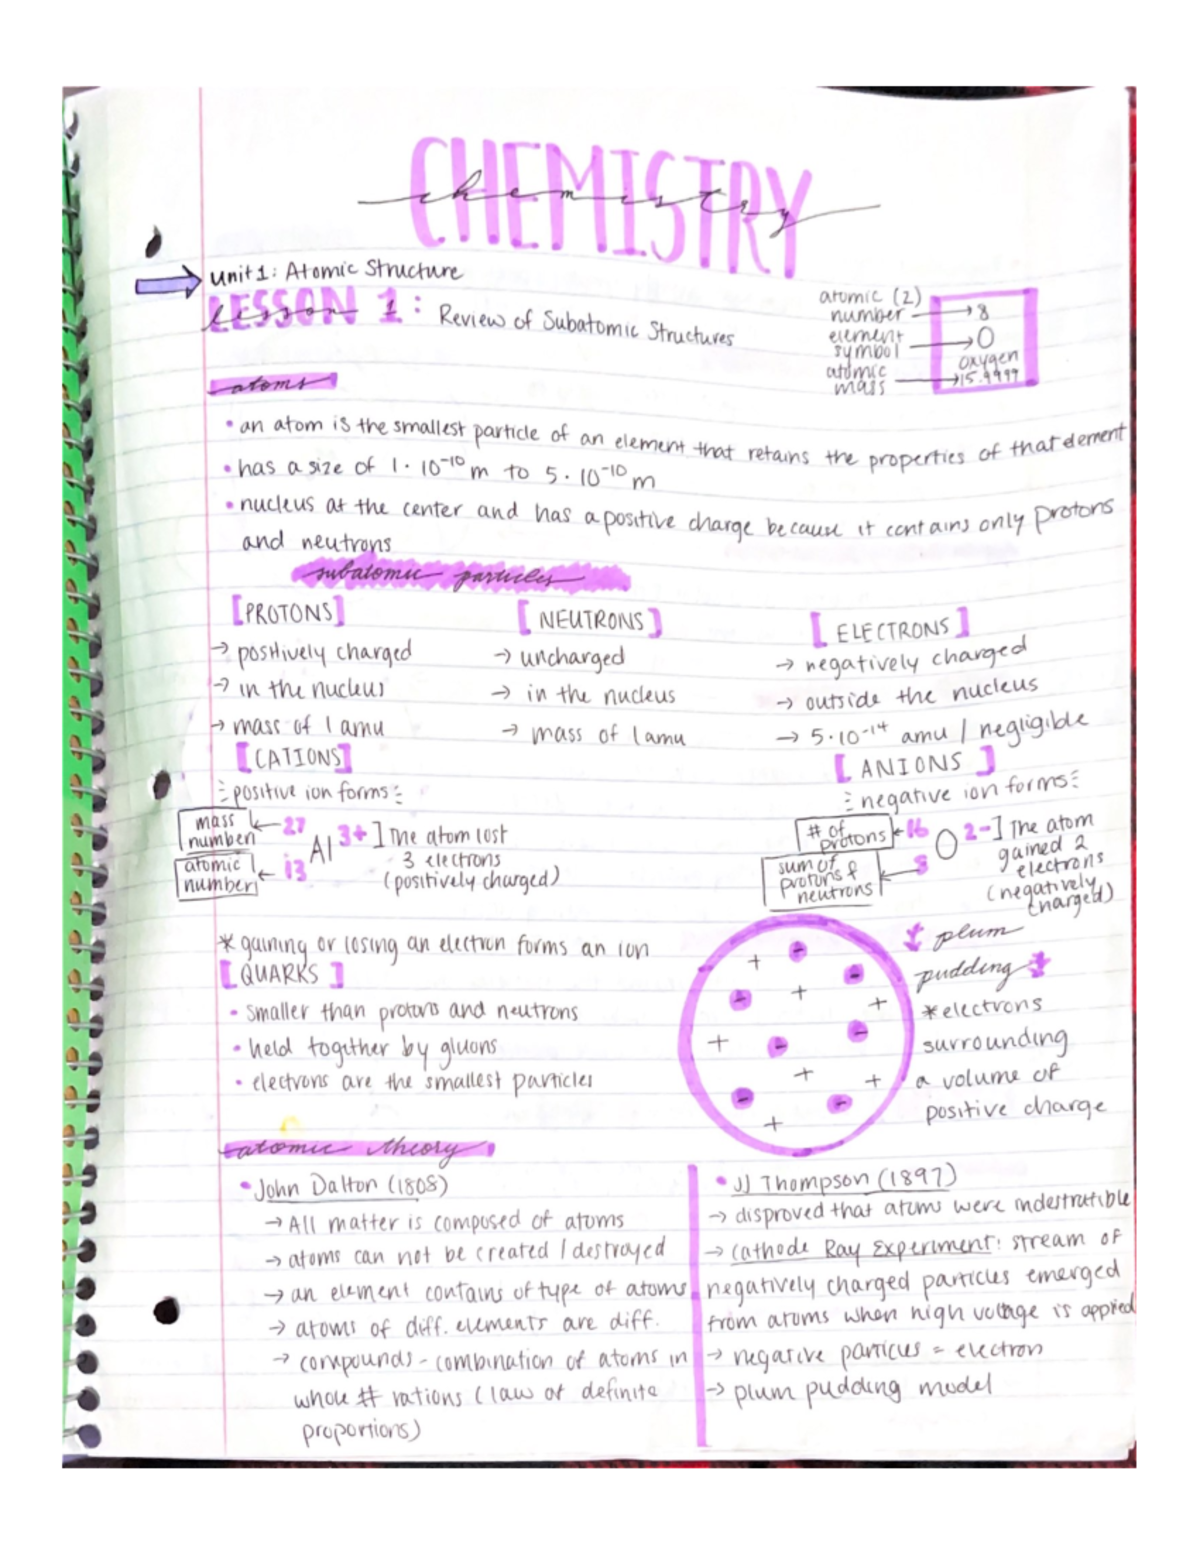 CHEMISTRY
chemistry
Unit 1: Atomic Structure
LESSON 1:
lesson
Review of Subatomic Structures
atomic (2)
number → 8
element
symbol → O
oxygen
atomic
mass → 15.9999
atoms
• an atom is the smallest particle of an element that retains the properties of that element
• has a size of 1 · 10⁻¹⁰ m to 5 · 10⁻¹⁰ m
• nucleus at the center and has a positive charge because it contains only protons
and neutrons
subatomic particles
[PROTONS]
→ positively charged
→ in the nucleus
→ mass of 1 amu
[NEUTRONS]
→ uncharged
→ in the nucleus
→ mass of 1 amu
[ELECTRONS]
→ negatively charged
→ outside the nucleus
→ 5·10⁻¹⁴ amu / negligible
[CATIONS]
positive ion forms
mass
number ← 27
Al 3+ ] The atom lost
3 electrons
(positively charged)
atomic
number ← 13
[ANIONS]
negative ion forms
# of
protons ← 16
O 2- ] The atom
gained 2
electrons
(negatively
charged)
sum of
protons &
neutrons ← 8
* gaining or losing an electron forms an ion
[QUARKS]
• smaller than protons and neutrons
• held together by gluons
• electrons are the smallest particles
plum
pudding
* electrons
surrounding
a volume of
positive charge
atomic theory
• John Dalton (1808)
→ All matter is composed of atoms
→ atoms can not be created / destroyed
→ an element contains of type of atoms
→ atoms of diff. elements are diff.
→ compounds - combination of atoms in
whole # rations (law of definite
proportions)
• JJ Thompson (1897)
→ disproved that atoms were indestratible
→ Cathode Ray Experiment: stream of
negatively charged particles emerged
from atoms when high voltage is applied
→ negative particles = electron
→ plum pudding model